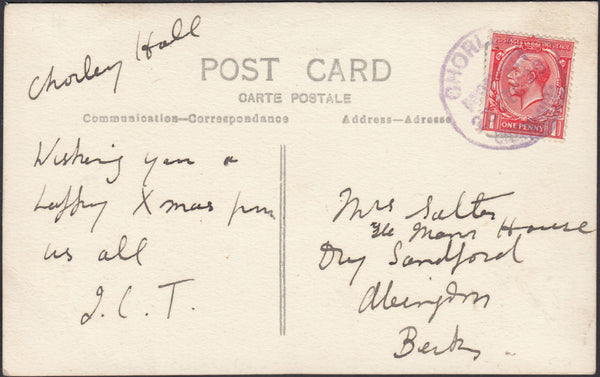 Chorley Hall
POST CARD
CARTE POSTALE
Communication—Correspondence
Address—Adresse
Wishing you a
happy Xmas from
us all
J.C.T.
Mrs Salter
Manor House
Dry Sandford
Abingdon
Berks.
POSTAGE REVENUE
ONE PENNY
CHORL